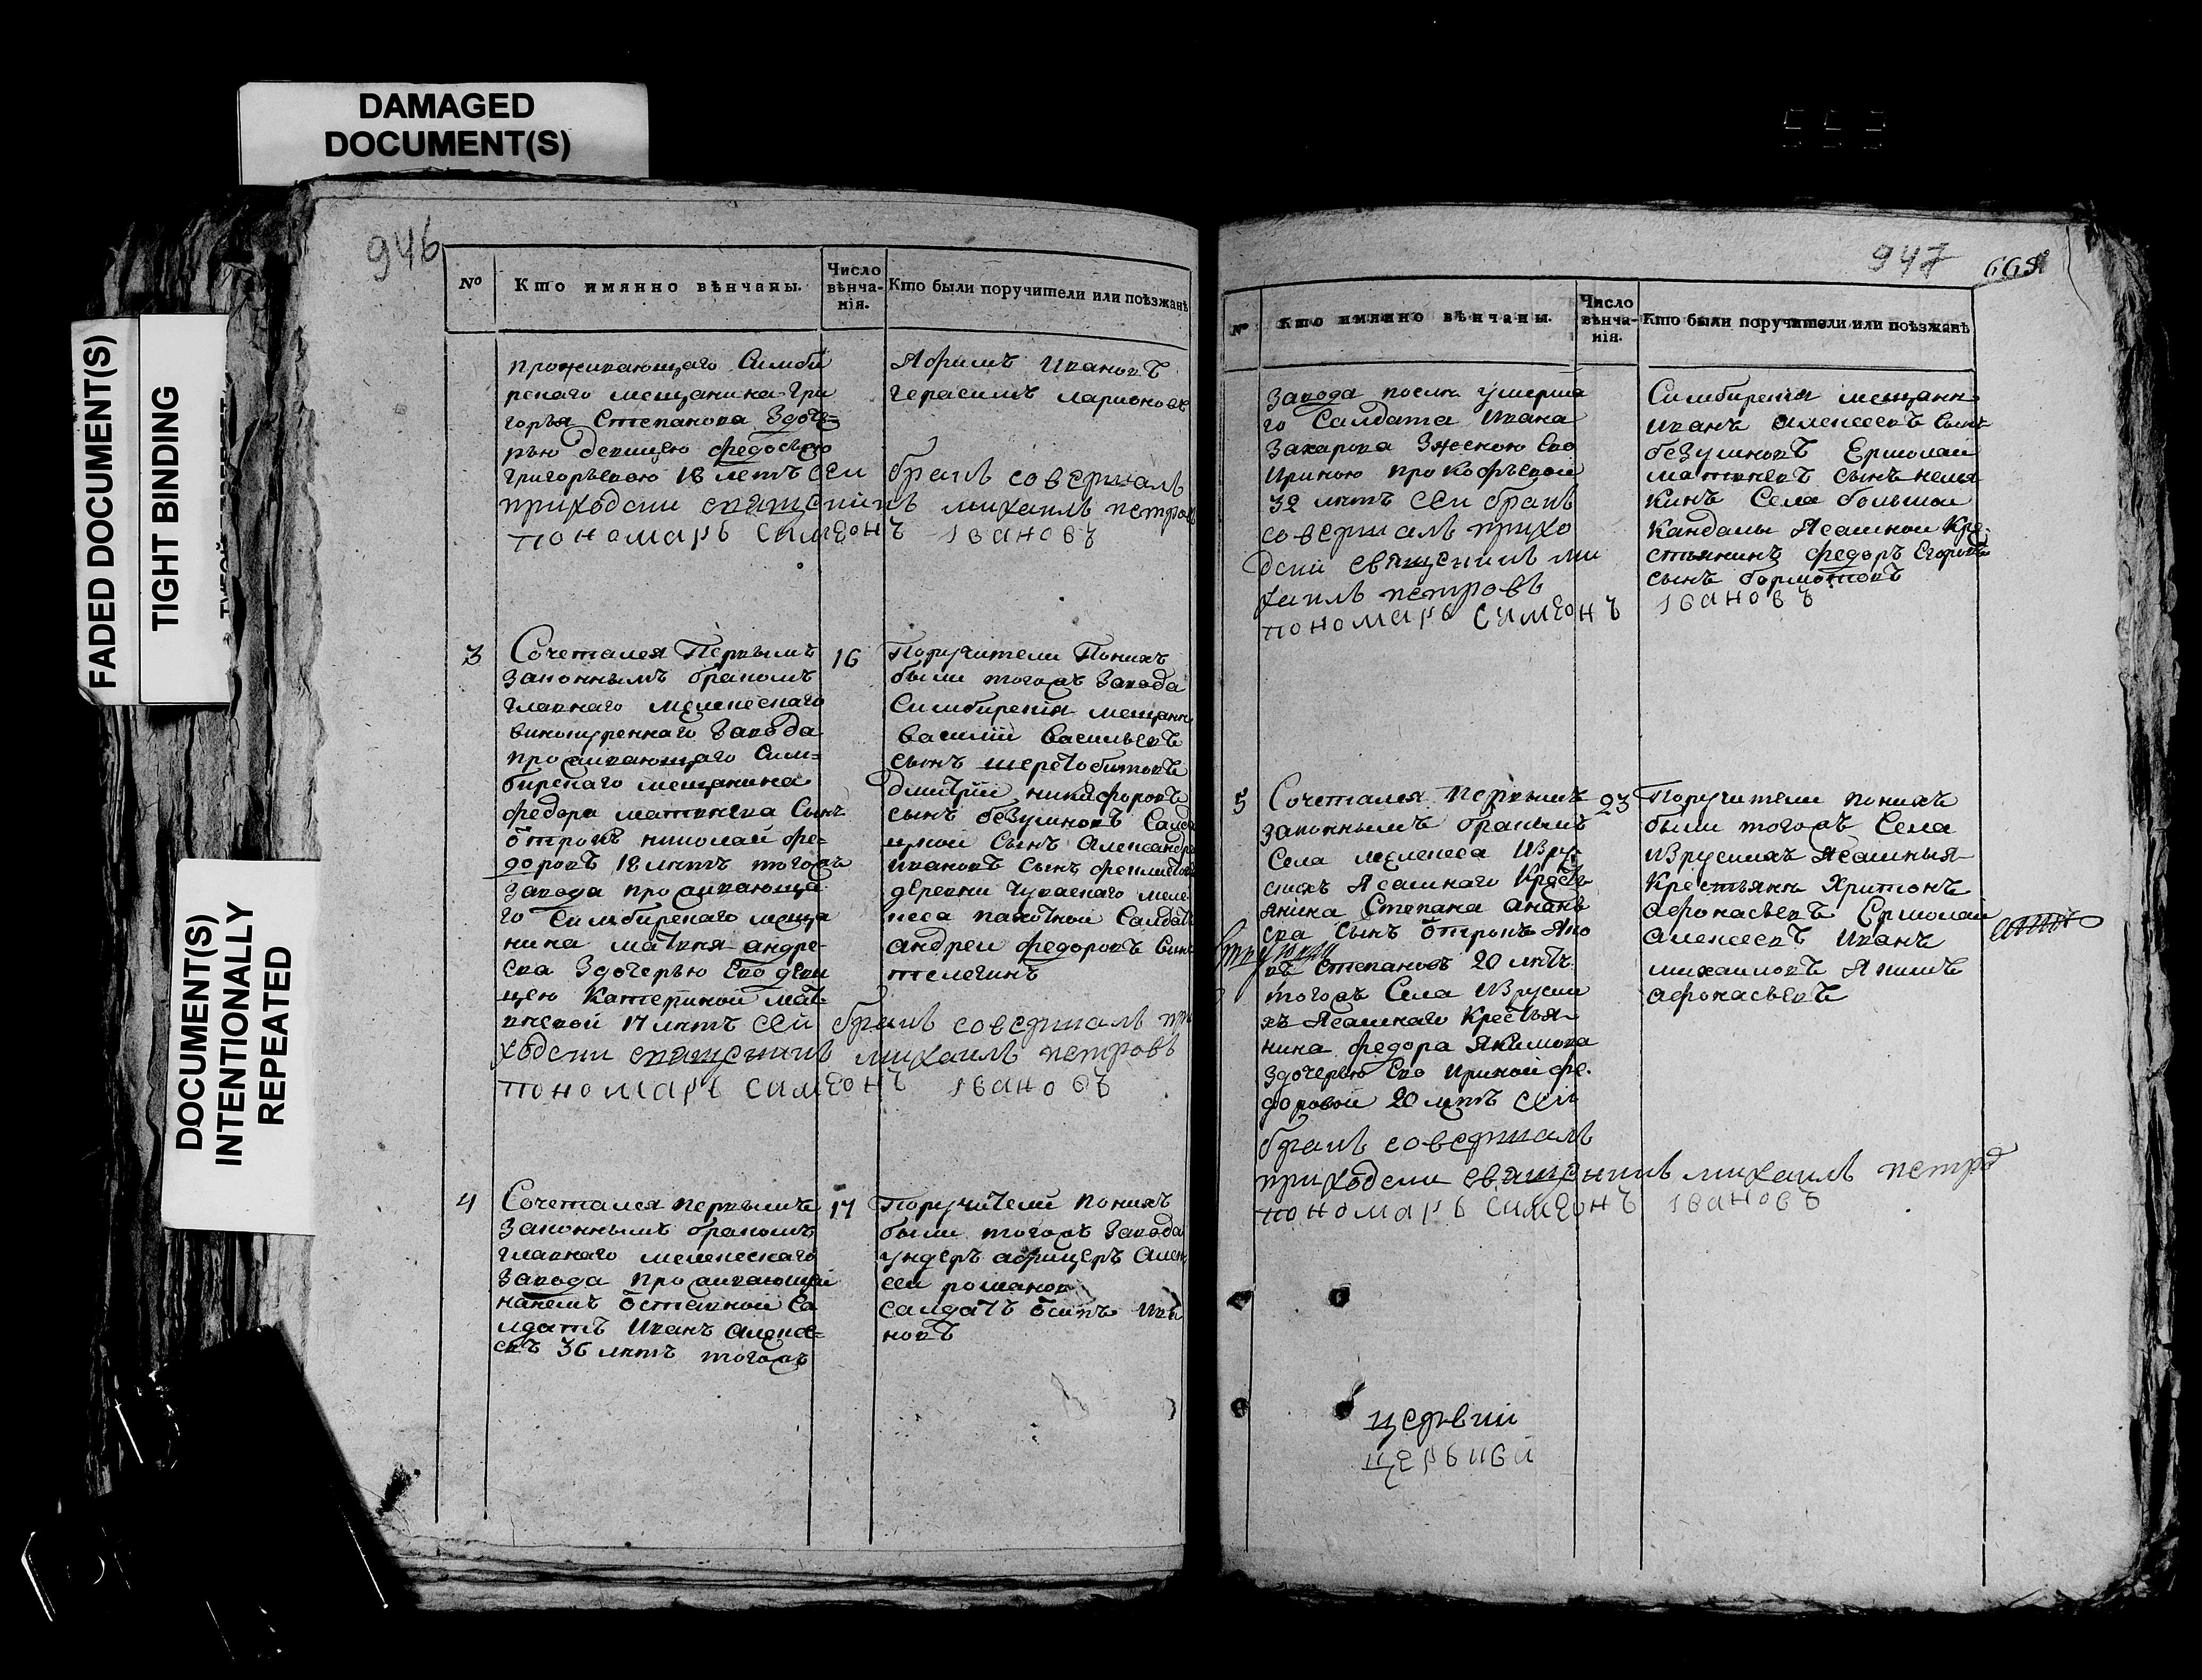 DAMAGED
DOCUMENT(S)
FADED DOCUMENT(S)
TIGHT BINDING
DOCUMENT(S)
INTENTIONALLY
REPEATED
946
№
Кто имянно вѣнчаны.
Число
вѣнча-
нія.
Кто были поручители или поѣзжанѣ
проживающаго Симби
рскаго мещанина Гри
горья Степанова Здоче=
рью девицею федосьею
григорьевою 18 летъ сеи
приходски священникъ
пономарь симеонъ
Ивановъ
герасимъ ларионовъ
бракъ совершалъ
михаилъ петровъ
iвановъ
3
Сочетался Первымъ
Законнымъ бракомъ
главнаго мелекескаго
винокуреннаго Завода
проживающаго Сим=
бирскаго мещанина
федора матвѣева Сынъ
отрокъ николай фе=
доровъ 18 лѣтъ тогожъ
Завода проживающа
го Симбирскаго меща
нина матвея андре=
ева Здочерью Его деви
цею Катериной мат=
веевой 17 лѣтъ сей бракъ совершалъ при
ходски священникъ михаилъ петровъ
пономарь симеонъ iвановъ
16
Поручители Понихъ
были тогожъ Завода
Симбирскiя мещани
василiй васильевъ
сынъ шеретобитовъ
дмитрiй никифоровъ
сынъ безумновъ
сынъ александръ
ивановъ сынъ
деревни
салдатъ
андреи федоровъ сынъ
телегинъ
4
Сочетался первымъ
Законнымъ бракомъ
главнаго мелекескаго
Завода проживающей
нанемъ отставной са
лдатъ Иванъ алексе=
евъ 36 лѣтъ тогожъ
17
Поручители понихъ
были тогожъ Завода
ундеръ афицеръ алек
сеи романовъ
салдатъ осипъ ива
новъ
947
№
Кто имянно вѣнчаны.
Число
вѣнча-
нія.
Кто были поручители или поѣзжанѣ
Завода послѣ умерша
го Салдата Ивана
Захарова Зженою Ево
Ириною прокофьевой
32 лѣтъ сеи бракъ
совершалъ прихо
дски священникъ ми
хаилъ петровъ
пономарь симеонъ iвановъ
Симбирскiя мещани
иванъ алексеевъ сынъ
безумновъ Ермолаи
матвеевъ сынъ
Села большои
Кандалы Ясашнои Кре=
стьянинъ федоръ Егоровъ
сынъ бормотовъ
5
Сочетался первымъ
законнымъ бракомъ
Села мелекеса Изру=
скихъ Ясашнаго Кресть
янина Степана анань
ева Сынъ отрокъ Яко
въ Степановъ 20 лѣтъ
тогожъ Села Изруски
хъ Ясашнаго Крестья=
нина федора Якимова
Здочерью Ево Ириной фе=
доровой 20 летъ сеи
бракъ совершалъ
приходски священникъ михаилъ петро
пономарь симеонъ iвановъ
23
Поручители понихъ
были тогожъ Села
Изрускихъ Ясашныя
Крестьяни Харитонъ
афонасьевъ Ермолаи
алексеевъ Иванъ
михаиловъ Якимъ
афонасьевъ
церькви
церькви